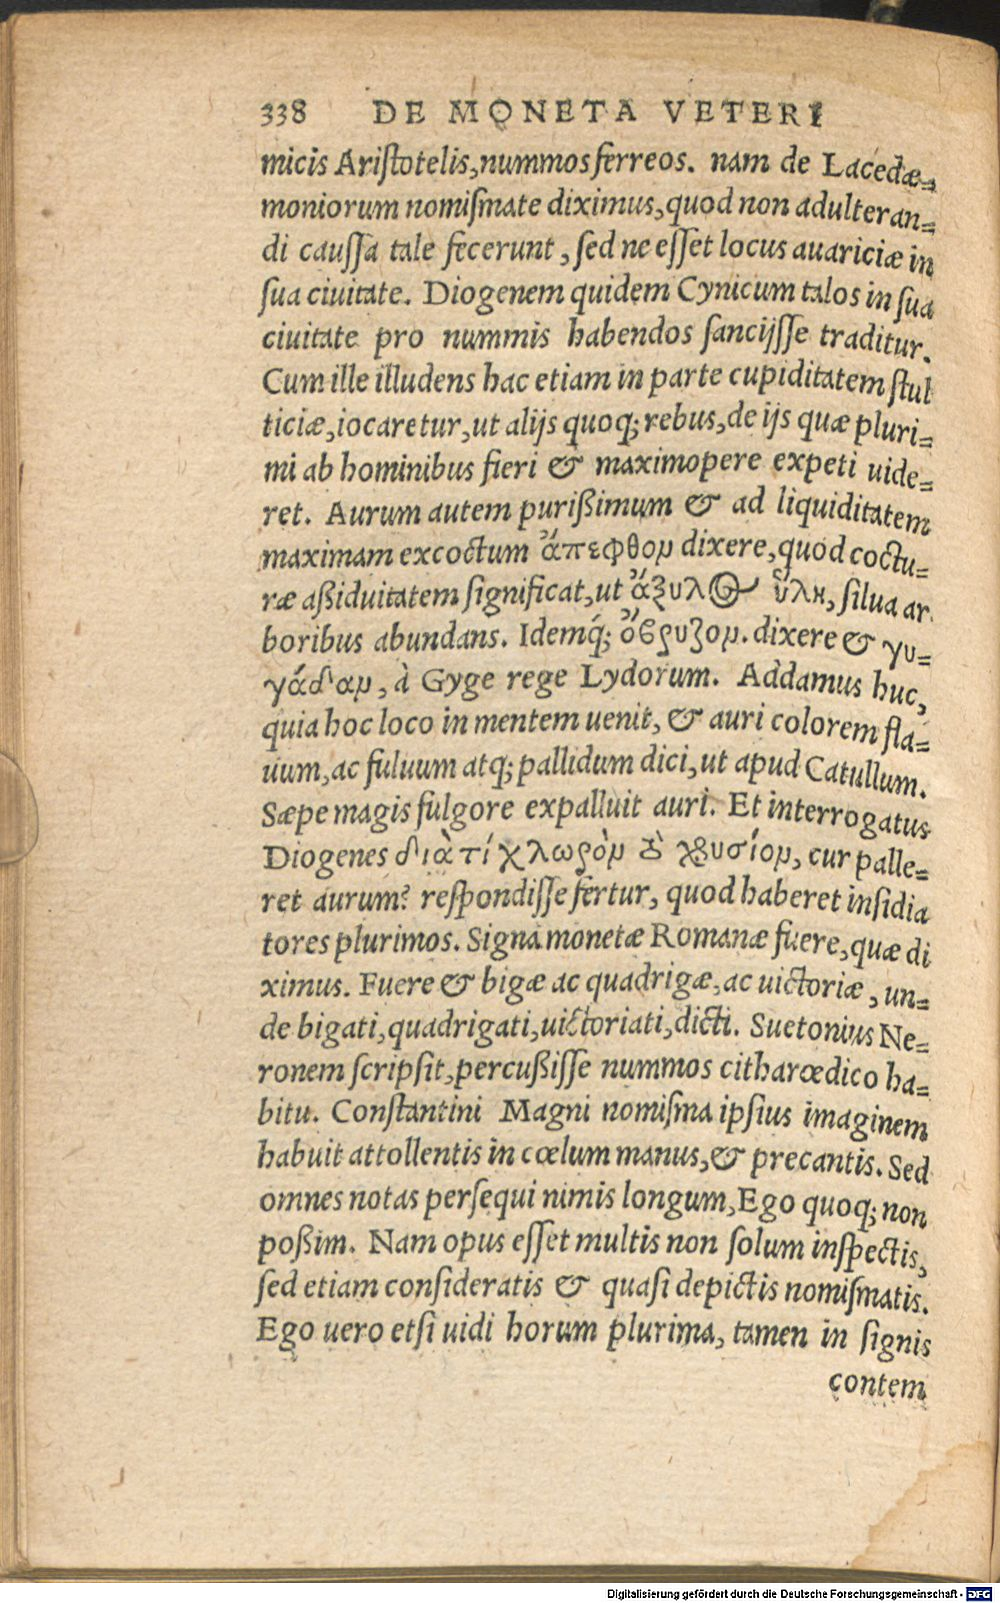 338 DE MONETA VETERI
micis Ariſtotelis, nummos ferreos. nam de Lacedæ=
moniorum nomiſmate diximus, quod non adulteran=
di cauſſa tale fecerunt, ſed ne eſſet locus auariciæ in
ſua ciuitate. Diogenem quidem Cynicum talos in ſua
ciuitate pro nummis habendos ſancijſſe traditur.
Cum ille illudens hac etiam in parte cupiditatem ſtul
ticiæ, iocaretur, ut alijs quoq; rebus, de ijs quæ pluri=
mi ab hominibus fieri & maximopere expeti uide=
ret. Aurum autem purißimum & ad liquiditatem
maximam excoctum ἄπεφθον dixere, quod coctu=
ræ aßiduitatem ſignificat, ut ἄξυλος ὕλη, ſilua ar
boribus abundans. Idemq́; ὄβρυζον. dixere & γυ=
γάδαν, à Gyge rege Lydorum. Addamus huc,
quia hoc loco in mentem uenit, & auri colorem fla=
uum, ac fuluum atq; pallidum dici, ut apud Catullum.
Sæpe magis fulgore expalluit auri. Et interrogatus
Diogenes διὰτί χλωρὸν τὸ χρυσίον, cur palle=
ret aurum? reſpondiſſe fertur, quod haberet inſidia
tores plurimos. Signa monetæ Romanæ fuere, quæ di
ximus. Fuere & bigæ ac quadrigæ, ac uictoriæ, un=
de bigati, quadrigati, uictoriati, dicti. Suetonius Ne=
ronem ſcripſit, percußiſſe nummos citharœdico ha=
bitu. Conſtantini Magni nomiſma ipſius imaginem
habuit attollentis in cœlum manus, & precantis. Sed
omnes notas perſequi nimis longum, Ego quoq; non
poßim. Nam opus eſſet multis non ſolum inſpectis,
ſed etiam conſideratis & quaſi depictis nomiſmatis.
Ego uero etſi uidi horum plurima, tamen in ſignis
contem
Digitalisierung gefördert durch die Deutsche Forschungsgemeinschaft - DFG